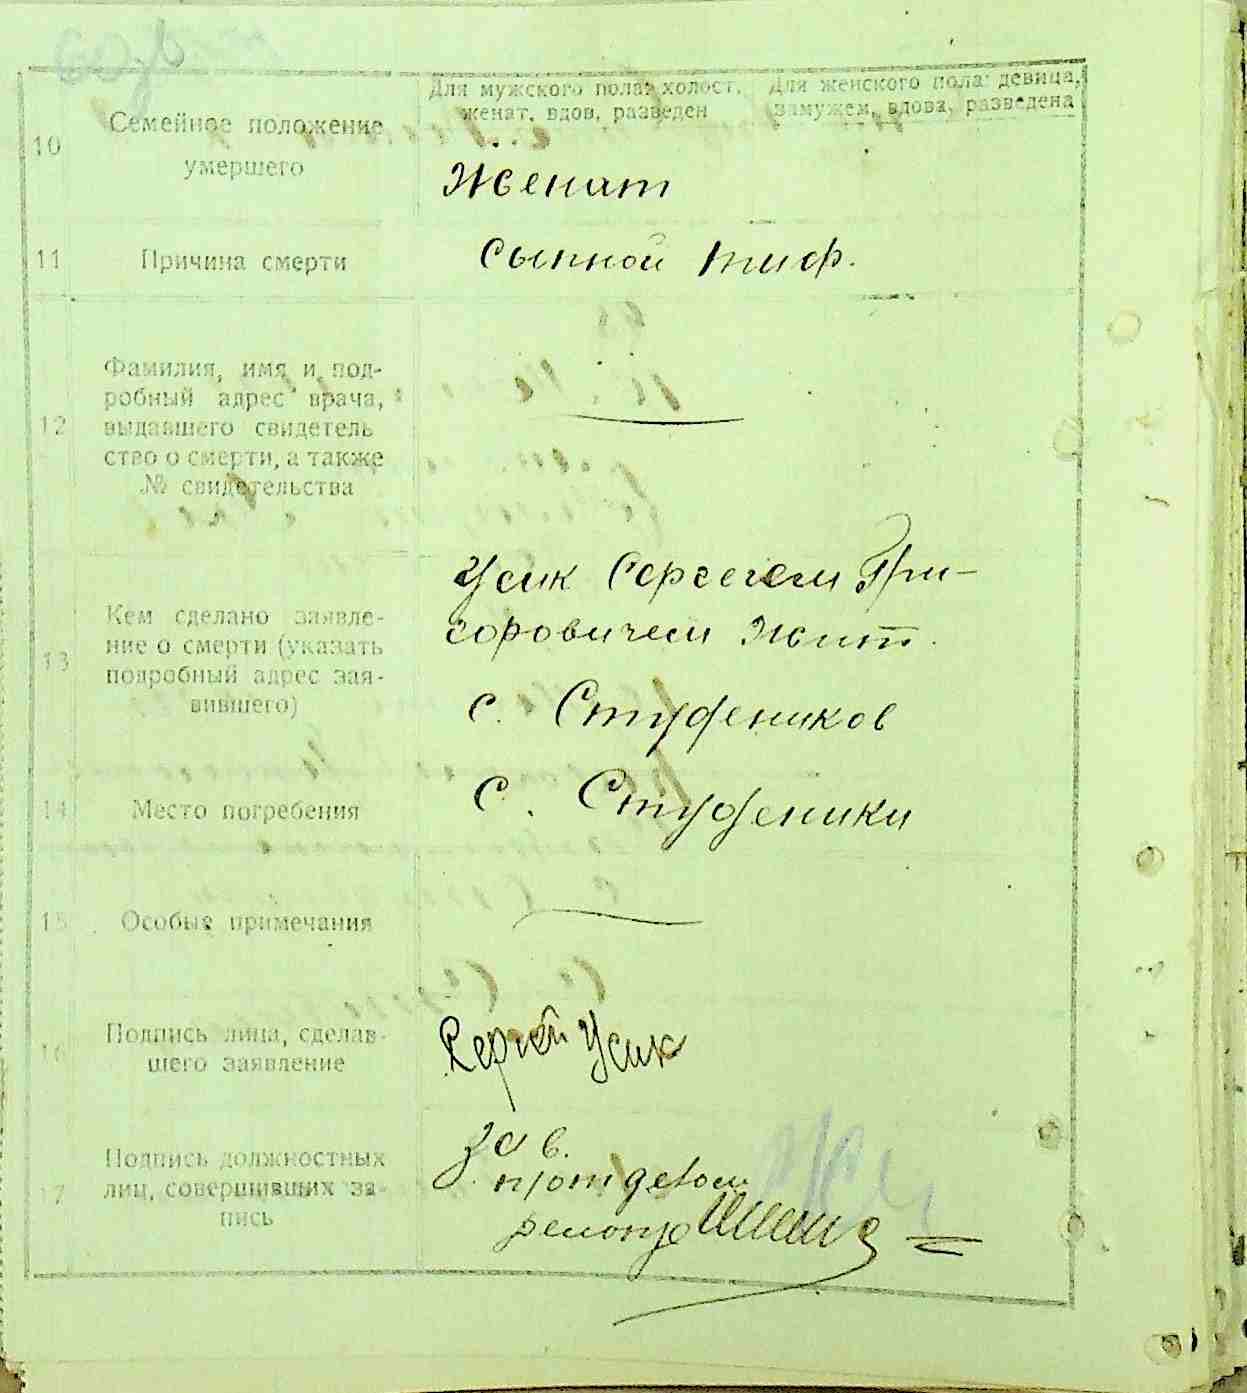 Для мужского пола: холост, женат, вдов, разведен
Для женского пола: девица, замужем, вдова, разведена
10 Семейное положение умершего
Женат
11 Причина смерти
Сыпной тиф.
12 Фамилия, имя и под-
робный адрес врача,
выдавшего свидетель
ство о смерти, а также
№ свидетельства
13 Кем сделано заявле-
ние о смерти (указать
подробный адрес зая-
вившего)
Усик Сергеем Гри-
горовичем жит.
с. Студеников
14 Место погребения
с. Студеники
15 Особые примечания
16 Подпись лица, сделав-
шего заявление
Сергей Усик
17 Подпись должностных
лиц, совершивших за-
пись
зав.